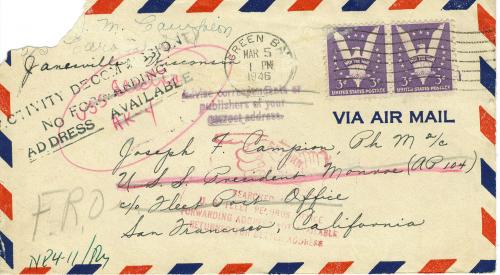 M. Campion
Janesville Wisconsin
GREEN BAY
MAR 5
1 PM
1946
WIN THE WAR
3¢ 3¢
UNITED STATES POSTAGE UNITED STATES POSTAGE
ACTIVITY DECOMMISSIONED
NO FORWARDING
ADDRESS AVAILABLE
Advise correspondents or
publishers of your
correct address.
VIA AIR MAIL
Joseph F. Campion, Ph M 2/c
U.S.S. President Monroe (AP 104)
c/o Fleet Post Office
San Francisco, California
SEARCHED
FORWARDING ADDRESS AVAILABLE
ADDRESS
F.R.O
NP4-11/